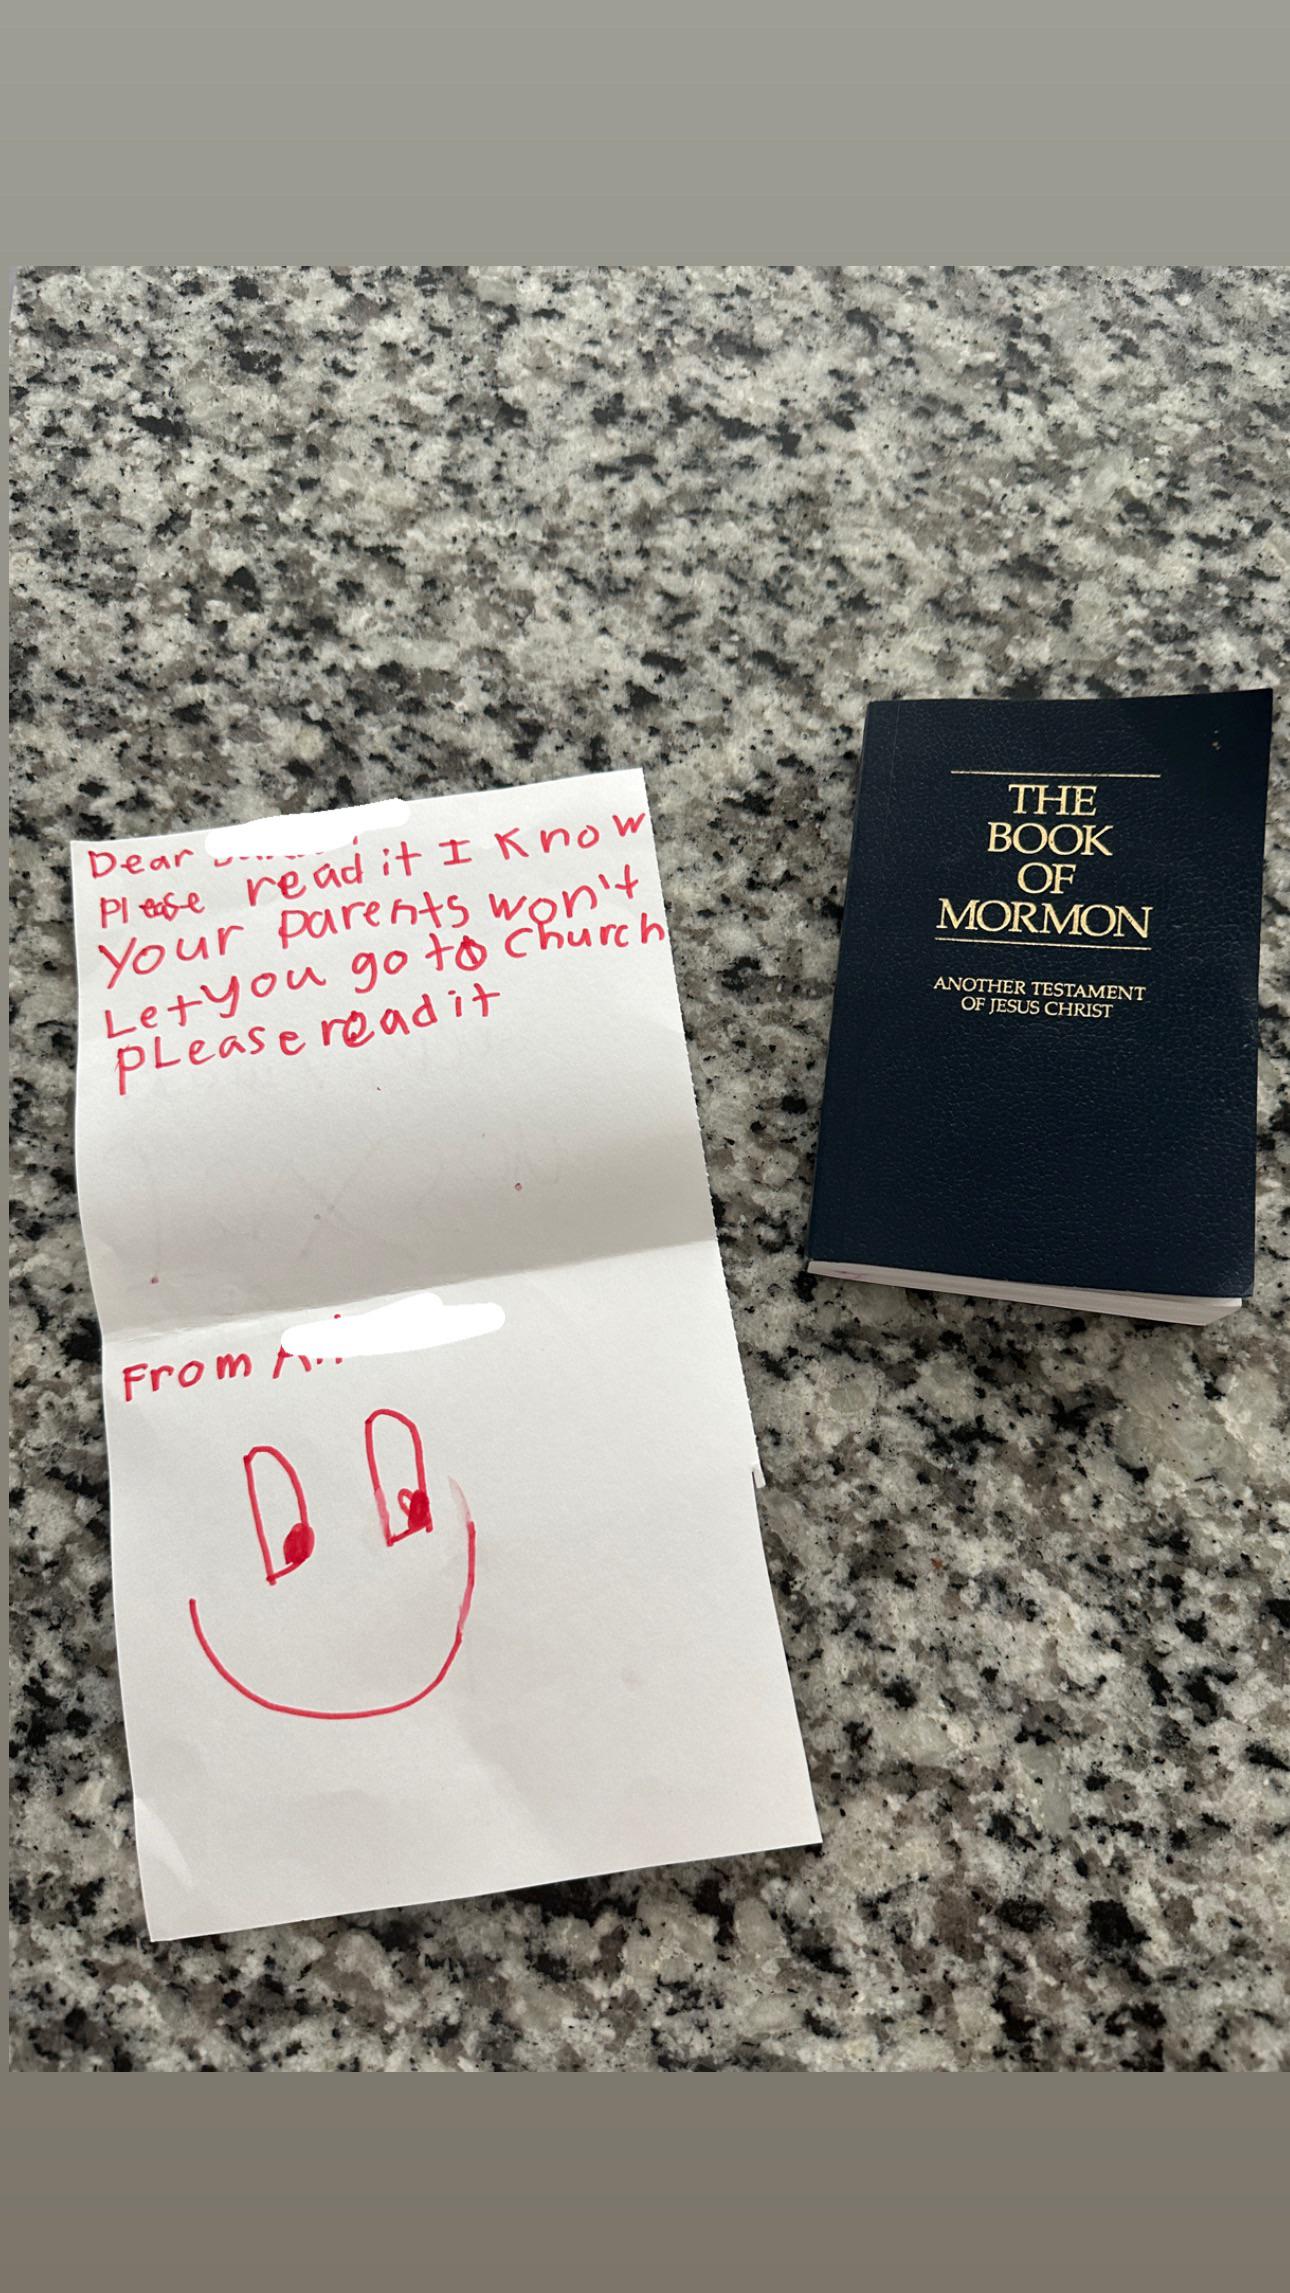 Dear
Please read it I Know
Your parents won't
Let you go to Church
pLease read it
From
THE
BOOK
OF
MORMON
ANOTHER TESTAMENT
OF JESUS CHRIST